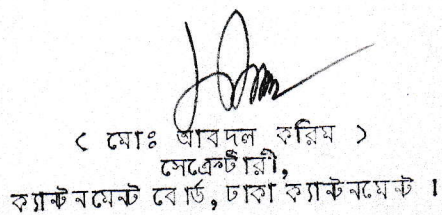 ( মোঃ আবদুল করিম )
সেক্রেটারী,
ক্যান্টনমেন্ট বোর্ড, ঢাকা ক্যান্টনমেন্ট ।